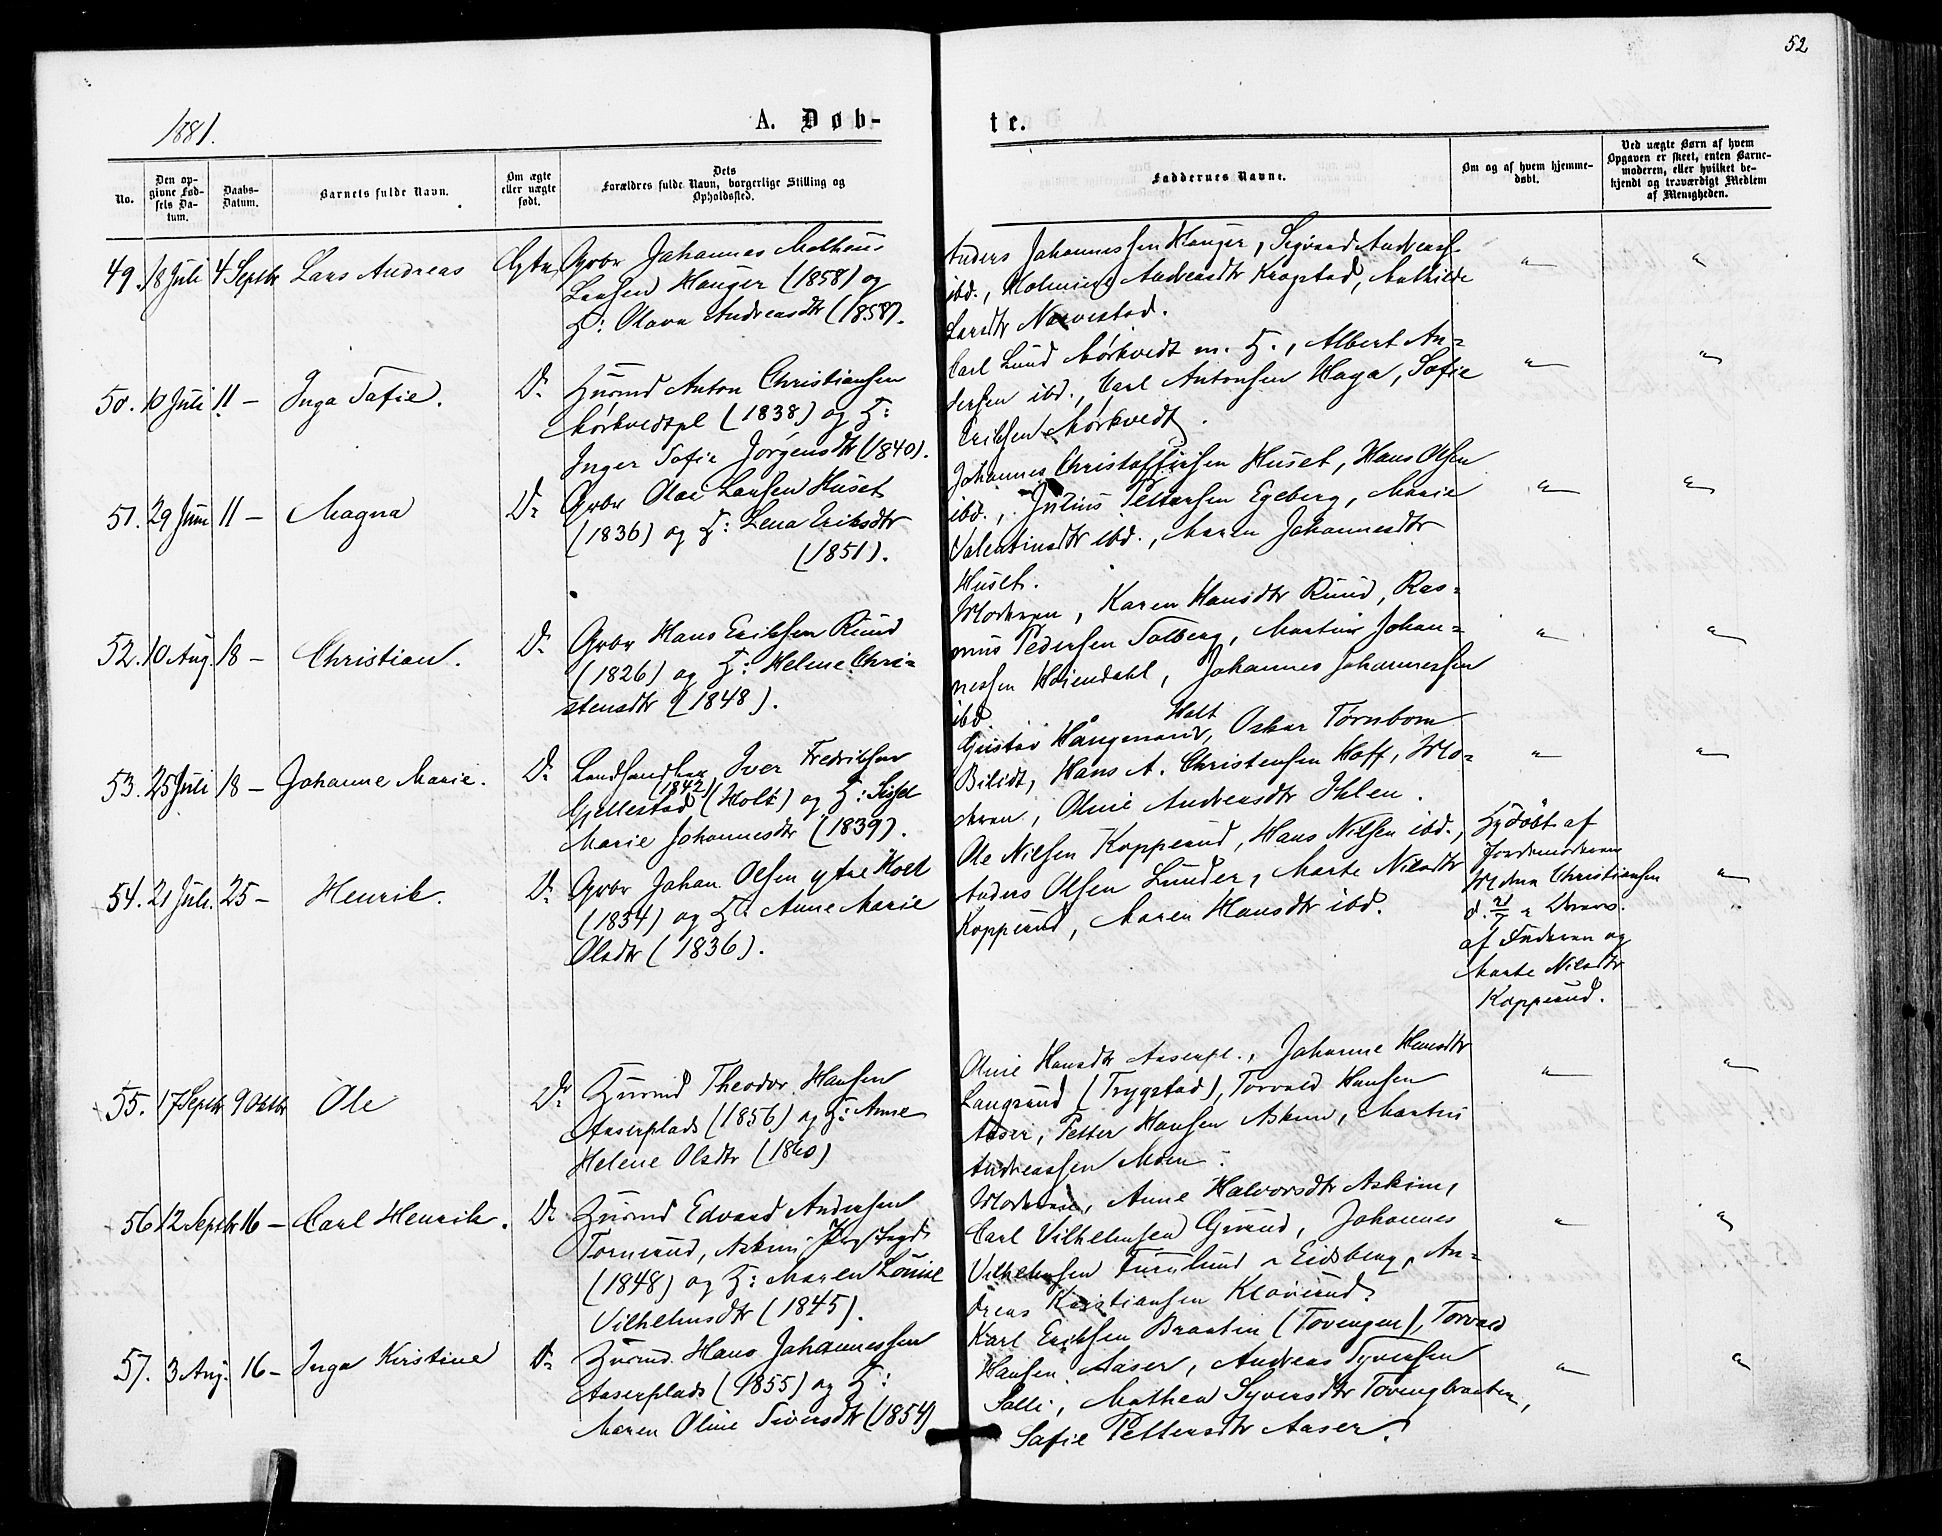 52
1881.
A. Døb-
te.
No.
Den op-
givne Fød-
sels Da-
tum.
Daabs-
Datum.
Barnets fulde Navn.
Om ægte
eller uægte
født.
Dets
Forældres fulde Navn, borgerlige Stilling og
Opholdssted.
Faddernes Navne.
Om og af hvem hjemme-
døbt.
Ved uægte Børn af hvem
Opgaven er skeet, enten Barne-
moderen, eller hvilket be-
kjendt og troværdigt Medlem
af Menigheden.
49. 18 Juli 4 Septbr Lars Andreas Ægte Gbr Johannes Matheus
Larsen Hauger (1858) og
H: Olava Andreasdtr (1858).
Anders Johannessen Hauger, Sigvard Andreass.
ibd., Andreasdtr Kragstad, Mathilde
Larsdtr Narvestad.
" "
50. 10 Juli 11 - Inga Sofie. Do Husmd Anton Christiansen
Mörkvedspl (1838) og H:
Inger Sofie Jørgensdtr (1840).
Carl Lund Mörkvedt m. H., Albert An=
dersen ibd., Carl Antonsen Haga, Sofie
Eriksen Mörkvedt.
" "
51. 29 Juni 11 - Magna Do Gbr Olai Larsen Huset
(1836) og H: Lena Eriksdtr
(1851).
Johannes Christoffersen Huset, Hans Olsen
ibd., Julius Pettersen Egeberg, Marie
Valentinsdtr ibd., Maren Johannesdtr
Huset.
" "
52. 10 Aug. 18 - Christian. Do Gbr Hans Eriksen Ruud
(1826) og H: Helene Chri=
stensdtr (1848).
Moderen, Karen Hansdtr Ruud, Ras=
mus Pedersen Solberg, Martin Johan=
nessen Höiendahl, Johannes Johannessen
ibd.
" "
53. 25 Juli 18 - Johanne Marie. Do Landhandler Iver Fredriksen
(1842)
Gjellestad (Holt) og H: Sissel
Marie Johannesdtr (1839).
Holt
Gustav Hångmand, Oskar Tørnbom
Bilidt, Hans A. Christensen Hoff, Mo=
deren, Oline Andreasdtr Ihlen.
" "
54. 21 Juli. 25 - Henrik. Do Gbr Johan Olsen ytre Holt
(1834) og H: Anne Marie
Olsdtr (1836).
Ole Nilsen Kopperud, Hans Nilsen ibd.,
Anders Olsen Lunder, Marte Nilsdtr
Kopperud, Maren Hansdtr ibd.
Hjdöbt af
Jordemoderen
Christiansen
d. 21/7
af Faderen og
Marte Nilsdtr
Kopperud.
"
55. 17 Septbr 9 Oktbr Ole Do Husmd Theodor Hansen
Aaserplads (1856) og H: Anne
Helene Olsdtr (1860)
Oline Hansdtr Aaserpl., Johanne Hansdtr
Langsrud (Trygstad), Torvald Hansen
Aaser, Petter Hansen Askim, Martin
Andreassen Moen.
" "
56 12 Septbr 16 - Carl Henrik. Do Husmd Edvard Andersen
Tornerud, Askim
(1848) og H: Maren Lovise
Vilhelmsdtr (1845).
Moderen, Anne Halvorsdtr Askim,
Carl Vilhelmsen Grund, Johannes
Vilhelmsen Furulund Eidsberg, An=
dreas Kristiansen Kloverud.
" "
57. 3 Aug. 16 - Inga Kirstine Do Husmd. Hans Johannessen
Aaserplads (1855) og H:
Maren Oline Siversdtr (1854)
Karl Eriksen Braaten (Tovengen), Torvald
Hansen Aaser, Andreas Syversen
Solli, Mathea Syversdtr Tovengbraaten,
Sofie Pettersdtr Aaser.
" "